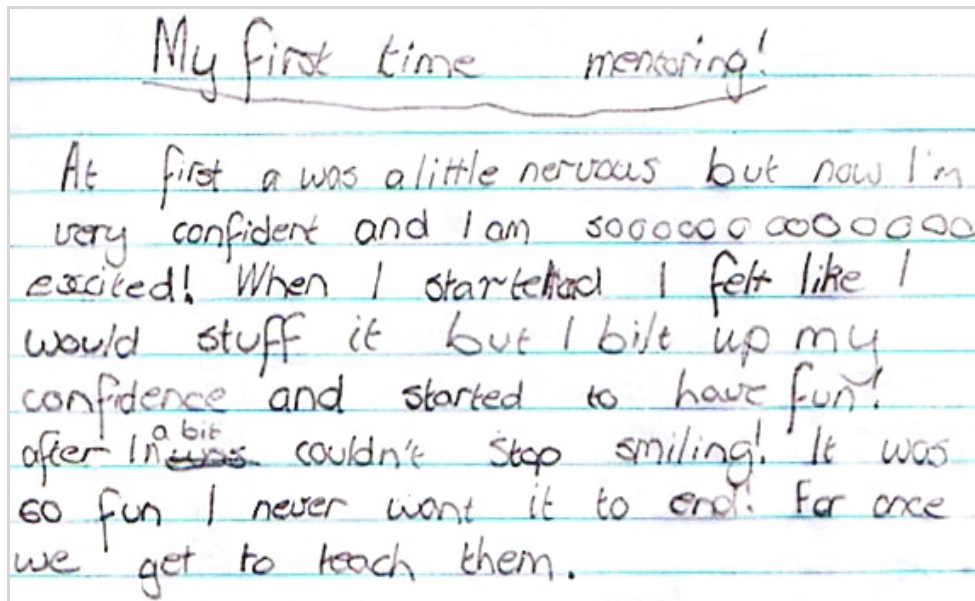 My first time mentoring!
At first a was a little nervous but now I'm
very confident and I am soooooooooooooo
excited! When I started I felt like I
would stuff it but I bilt up my
confidence and started to have fun!
after a bit I couldn't stop smiling! It was
so fun I never want it to end! For once
we get to teach them.